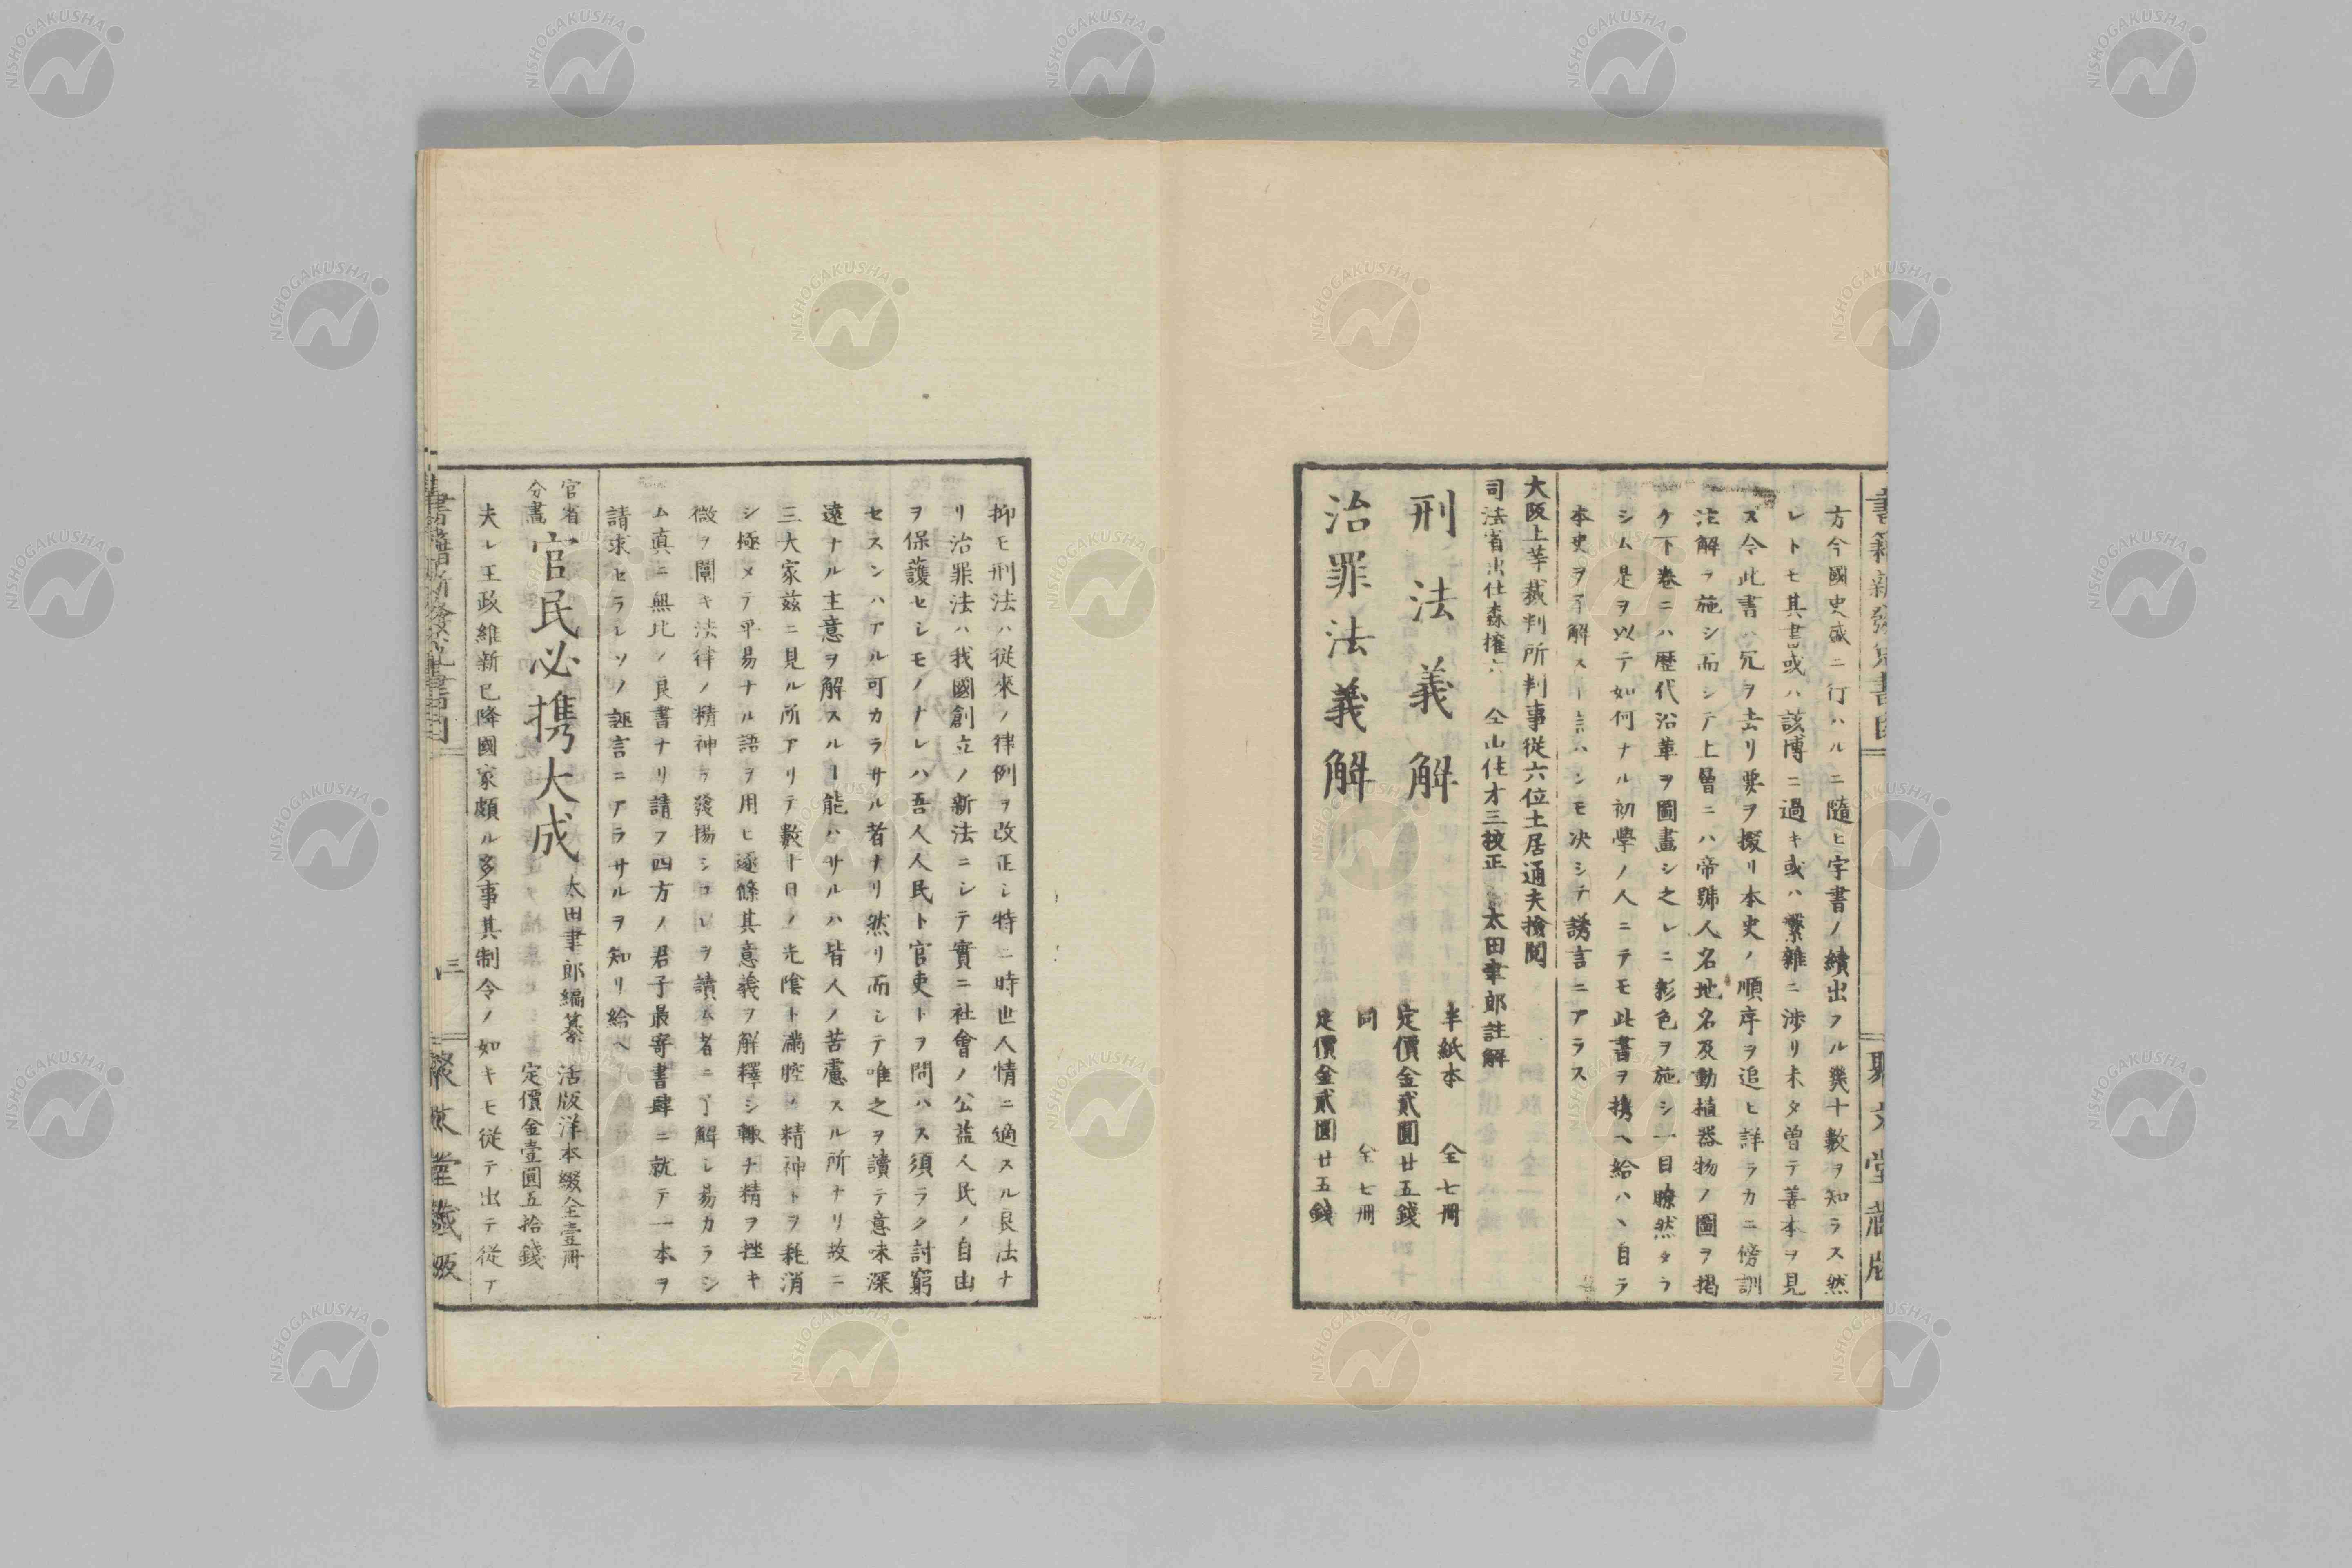 方今國史盛ニ行ハルニ隨ヒ字書ノ續出フル幾十數ヲ知ラス然
レトモ其書或ハ該博ニ過キ或ハ繁雜ニ渉リ未タ曽テ善本ヲ見
ス今此書ハ冗ヲ去リ要ヲ掇リ本史ノ順序ヲ追ヒ詳ラカニ傍訓
注解ヲ施シ而シテ上層ニハ帝號人名地名及動植器物ノ圖ヲ掲
ケ下卷ニハ歴代沿革ヲ圖畫シ之レニ彩色ヲ施シ一目瞭然タラ
シム是ヲ以テ如何ナル初學ノ人ニテモ此書ヲ携ヘ給ハヽ自ラ
本史ヲ了解スト言ハンモ决シテ誘言ニアラス
大阪上等裁判所判事從六位土居通夫撿閲
司法省出仕森權六 仝山住才三校正 太田聿郎註解
刑法義解 半紙本 全七冊
定價金貳圓廿五錢
治罪法義解 同 全七冊
定價金貳圓廿五錢
抑モ刑法ハ從來ノ律例ヲ改正シ特ニ時世人情ニ適スル良法ナ
リ治罪法ハ我國創立ノ新法ニシテ實ニ社會ノ公益人民ノ自由
ヲ保護セシモノナレハ吾人人民ト官吏トヲ問ハス須ラク討窮
セスンハアル可カラサル者ナリ然リ而シテ唯之ヲ讀テ意味深
遠ナル主意ヲ解スルヿ能ハサルハ皆人ノ苦慮スル所ナリ故ニ
三大家茲ニ見ル所アリテ數十日ノ光陰ト滿腔ノ精神トヲ耗消
シ極メテ平易ナル語ヲ用ヒ逐條其意義ヲ解釋シ輙ナ精ヲ挫キ
微ヲ闡キ法律ノ精神ヲ發揚シコレヲ讀ム者ニ了解シ易カラシ
ム真ニ無比ノ良書ナリ請フ四方ノ君子最寄書肆ニ就テ一本ヲ
請求セラレソノ誣言ニアラサルヲ知リ給ヘ
官省
分畫
官民必携大成 太田聿郎編纂 活版洋本綴全壹冊
定價金壹圓五拾錢
夫レ王政維新已降國家頗ル多事其制令ノ如キモ從テ出テ從テ
三
NISHOGAKUSHA